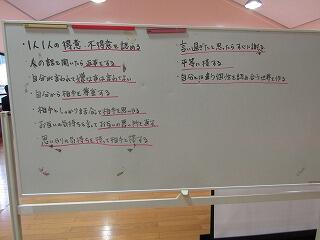 ・1人1人の得意・不得意を認める
・人の話を聞いたら返事をする
・自分が言われて嫌な事は言わない
・自分から相手を尊重する
・相手としっかり話合って相手を思いやる
・お互いの気持ちを言ってお互いの思い
・思いやりの気持ちを持って相手と接する
言い過ぎたと思ったらすぐに謝る
平等に接する
自分とは違う個性を認め合う世界を作る